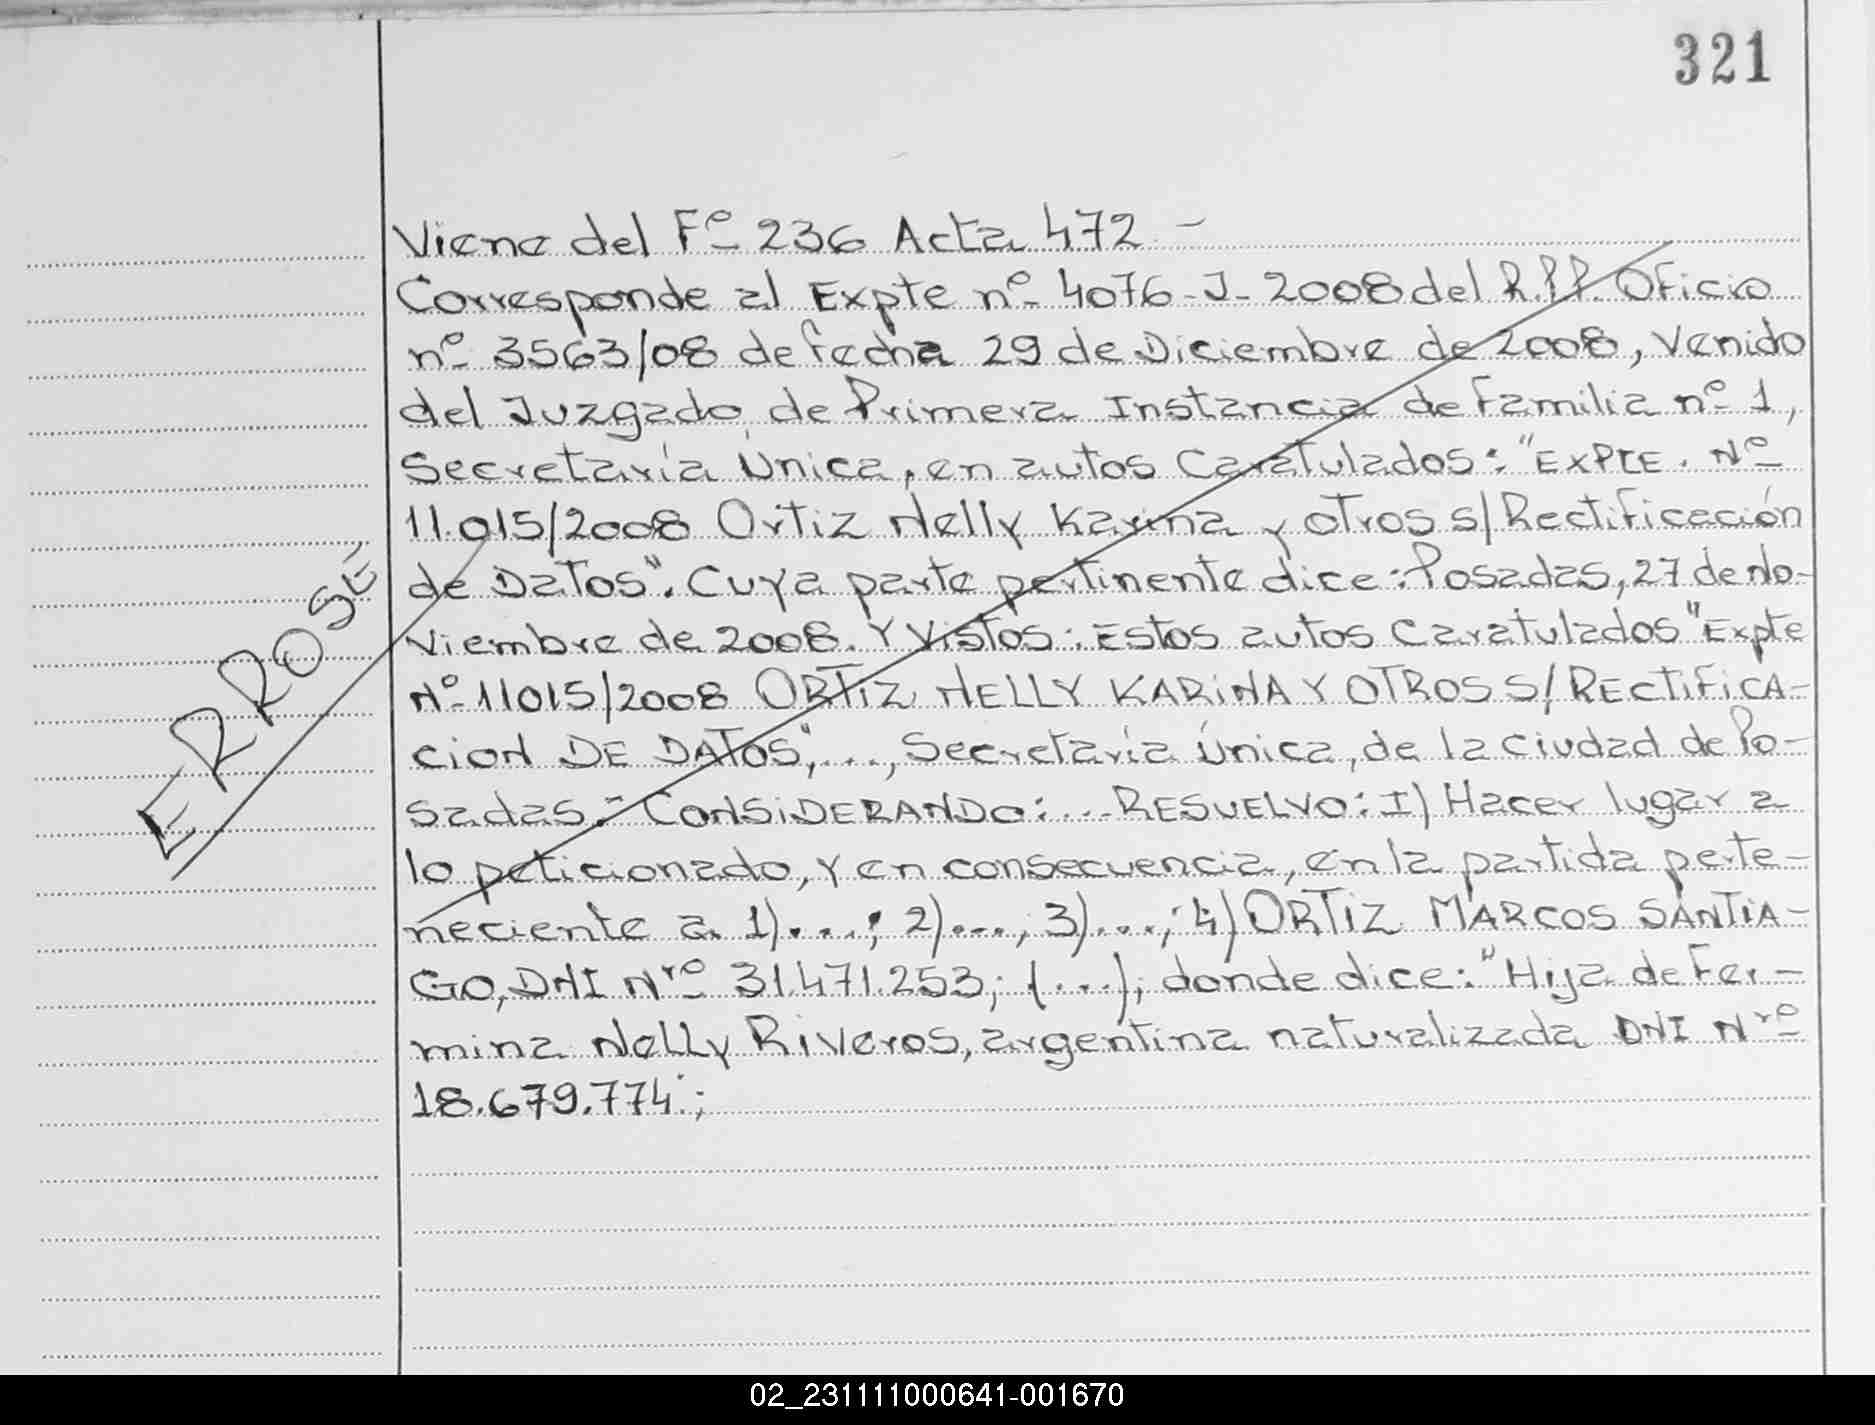 321
Viene del Fº 236 Acta 472 -
Corresponde al Expte nº 4076-J-2008 del R.P.P. Oficio
nº 3563/08 de fecha 29 de Diciembre de 2008, Venido
del Juzgado de Primera Instancia de Familia nº 1,
Secretaría Única, en autos Caratulados: "EXPTE. Nº
11.015/2008 Ortiz Nelly Karina y otros s/ Rectificación
de Datos". Cuya parte pertinente dice: Posadas, 27 de No-
viembre de 2008. Y Vistos: Estos autos Caratulados "Expte
Nº 11015/2008 ORTIZ NELLY KARINA Y OTROS S/ RECTIFICA-
CION DE DATOS", ..., Secretaría Única, de la ciudad de Po-
sadas.- CONSIDERANDO: ... RESUELVO: I) Hacer lugar a
lo peticionado, y en consecuencia, en la partida perte-
neciente a 1)...; 2)..., 3)...; 4) ORTIZ MARCOS SANTIA-
GO, DNI Nrº 31.471.253; (...); donde dice: "Hija de Fer-
mina Nelly Riveros, argentina naturalizada DNI Nrº
18.679.774";
ERROSE
02_231111000641-001670